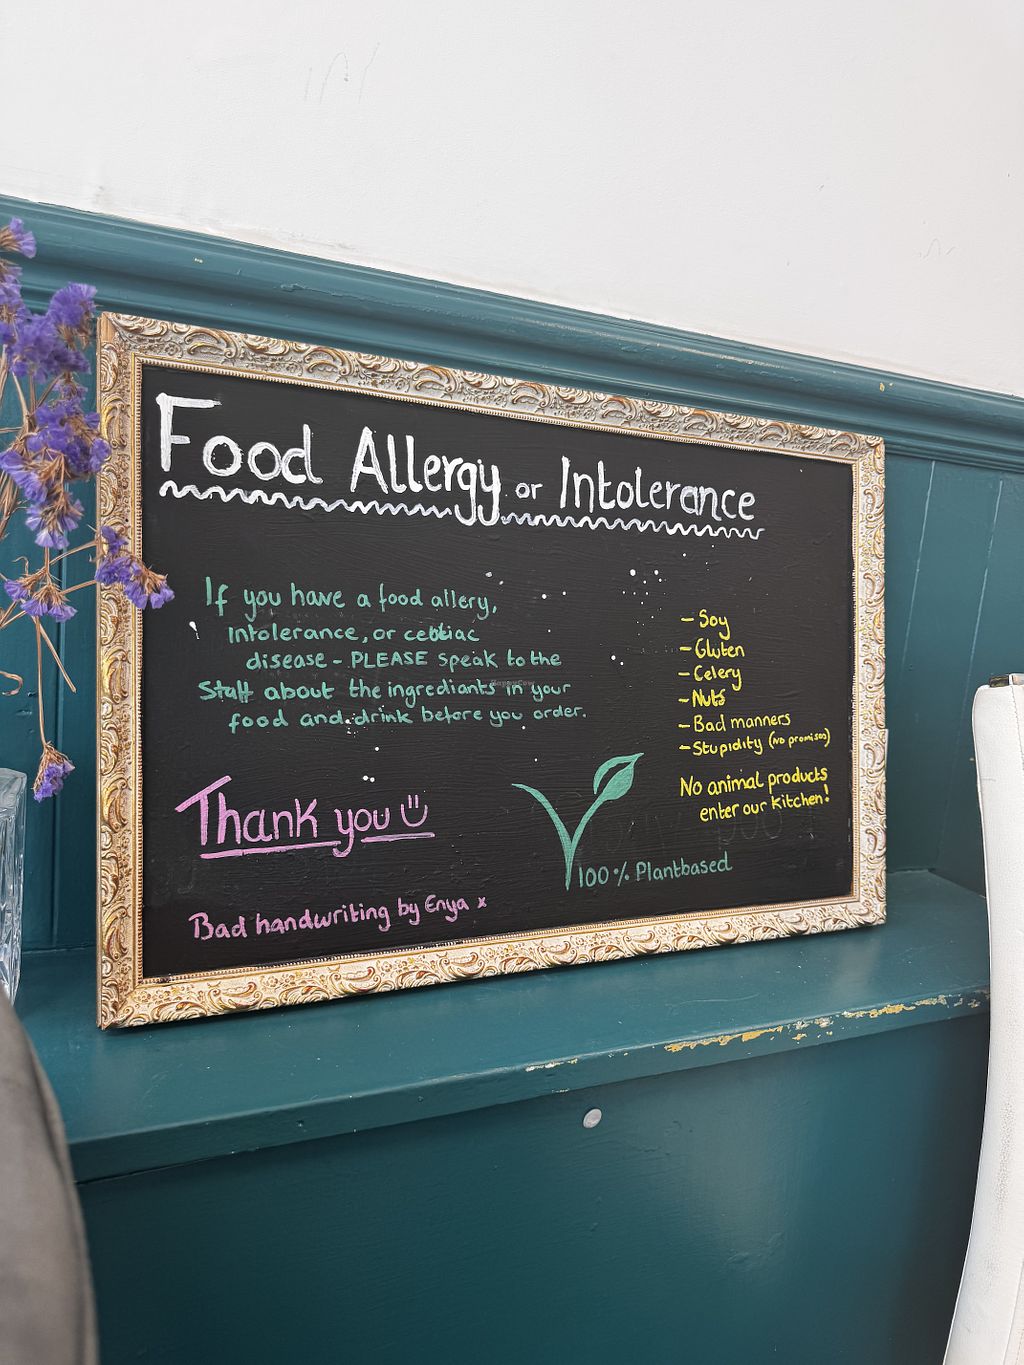 Food Allergy or Intolerance
If you have a food allery,
Intolerance, or celiac
disease - PLEASE speak to the
Staff about the ingrediants in your
food and drink before you order.
Thank you
Bad handwriting by Enya x
- Soy
- Gluten
- Celery
- Nuts
- Bad manners
- Stupidity (No promises)
No animal products
enter our kitchen!
100% Plantbased
HappyCow